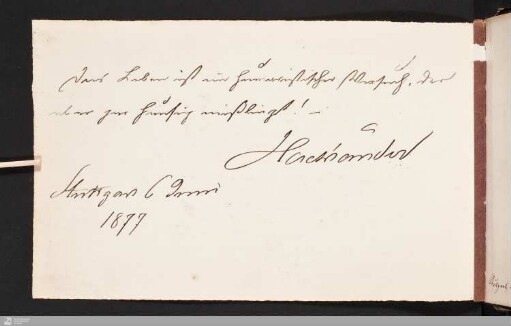 Das Leben ist ein humoristischer Versuch, der
aber gar häufig mißlingt! –
Hackländer
Stuttgart 6 Juni
1877